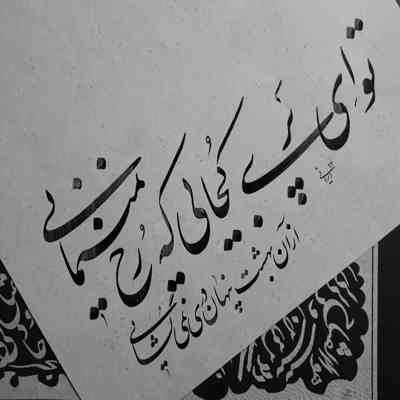 تو ای پری کجائی که رخ نمینمایی
از آن بهشت پنهان دری نمی‌گشایی